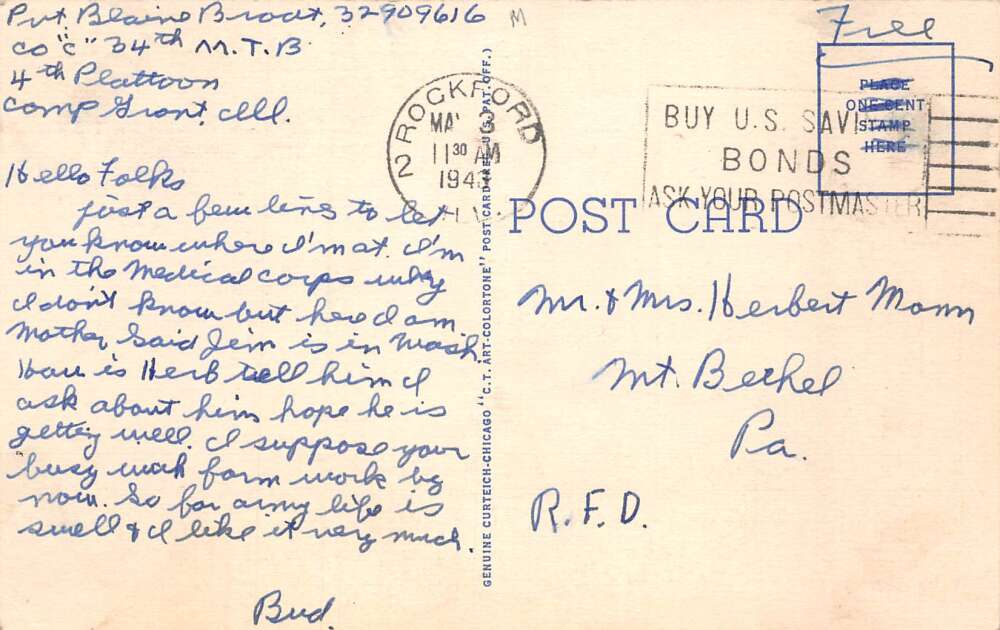 Pvt Blaine Brodt, 32909616
Co "C" 34th M.T.B
4th Plattoon
Camp Grant, Ill.
Hello Folks
just a few lines to let
you know where I'm at. I'm
in the Medical Corps why
I don't know but here I am.
Mother said Jim is in Wash.
How is Herb tell him I
ask about him hope he is
getting well. I suppose your
busy with farm work by
now. So far army life is
swell & I like it very much.
Bud.
GENUINE CURTEICH-CHICAGO "C.T. ART-COLORTONE" POST CARD (REG. U.S. PAT. OFF.)
M
ROCKFORD
2
MA 3
11 30 AM
194
ILL.
BUY U.S. SAVI
BONDS
ASK YOUR POSTMASTER
Free
PLACE
ONE CENT
STAMP
HERE
POST CARD
Mr. & Mrs. Herbert Mann
Mt. Bethel
Pa.
R.F.D.